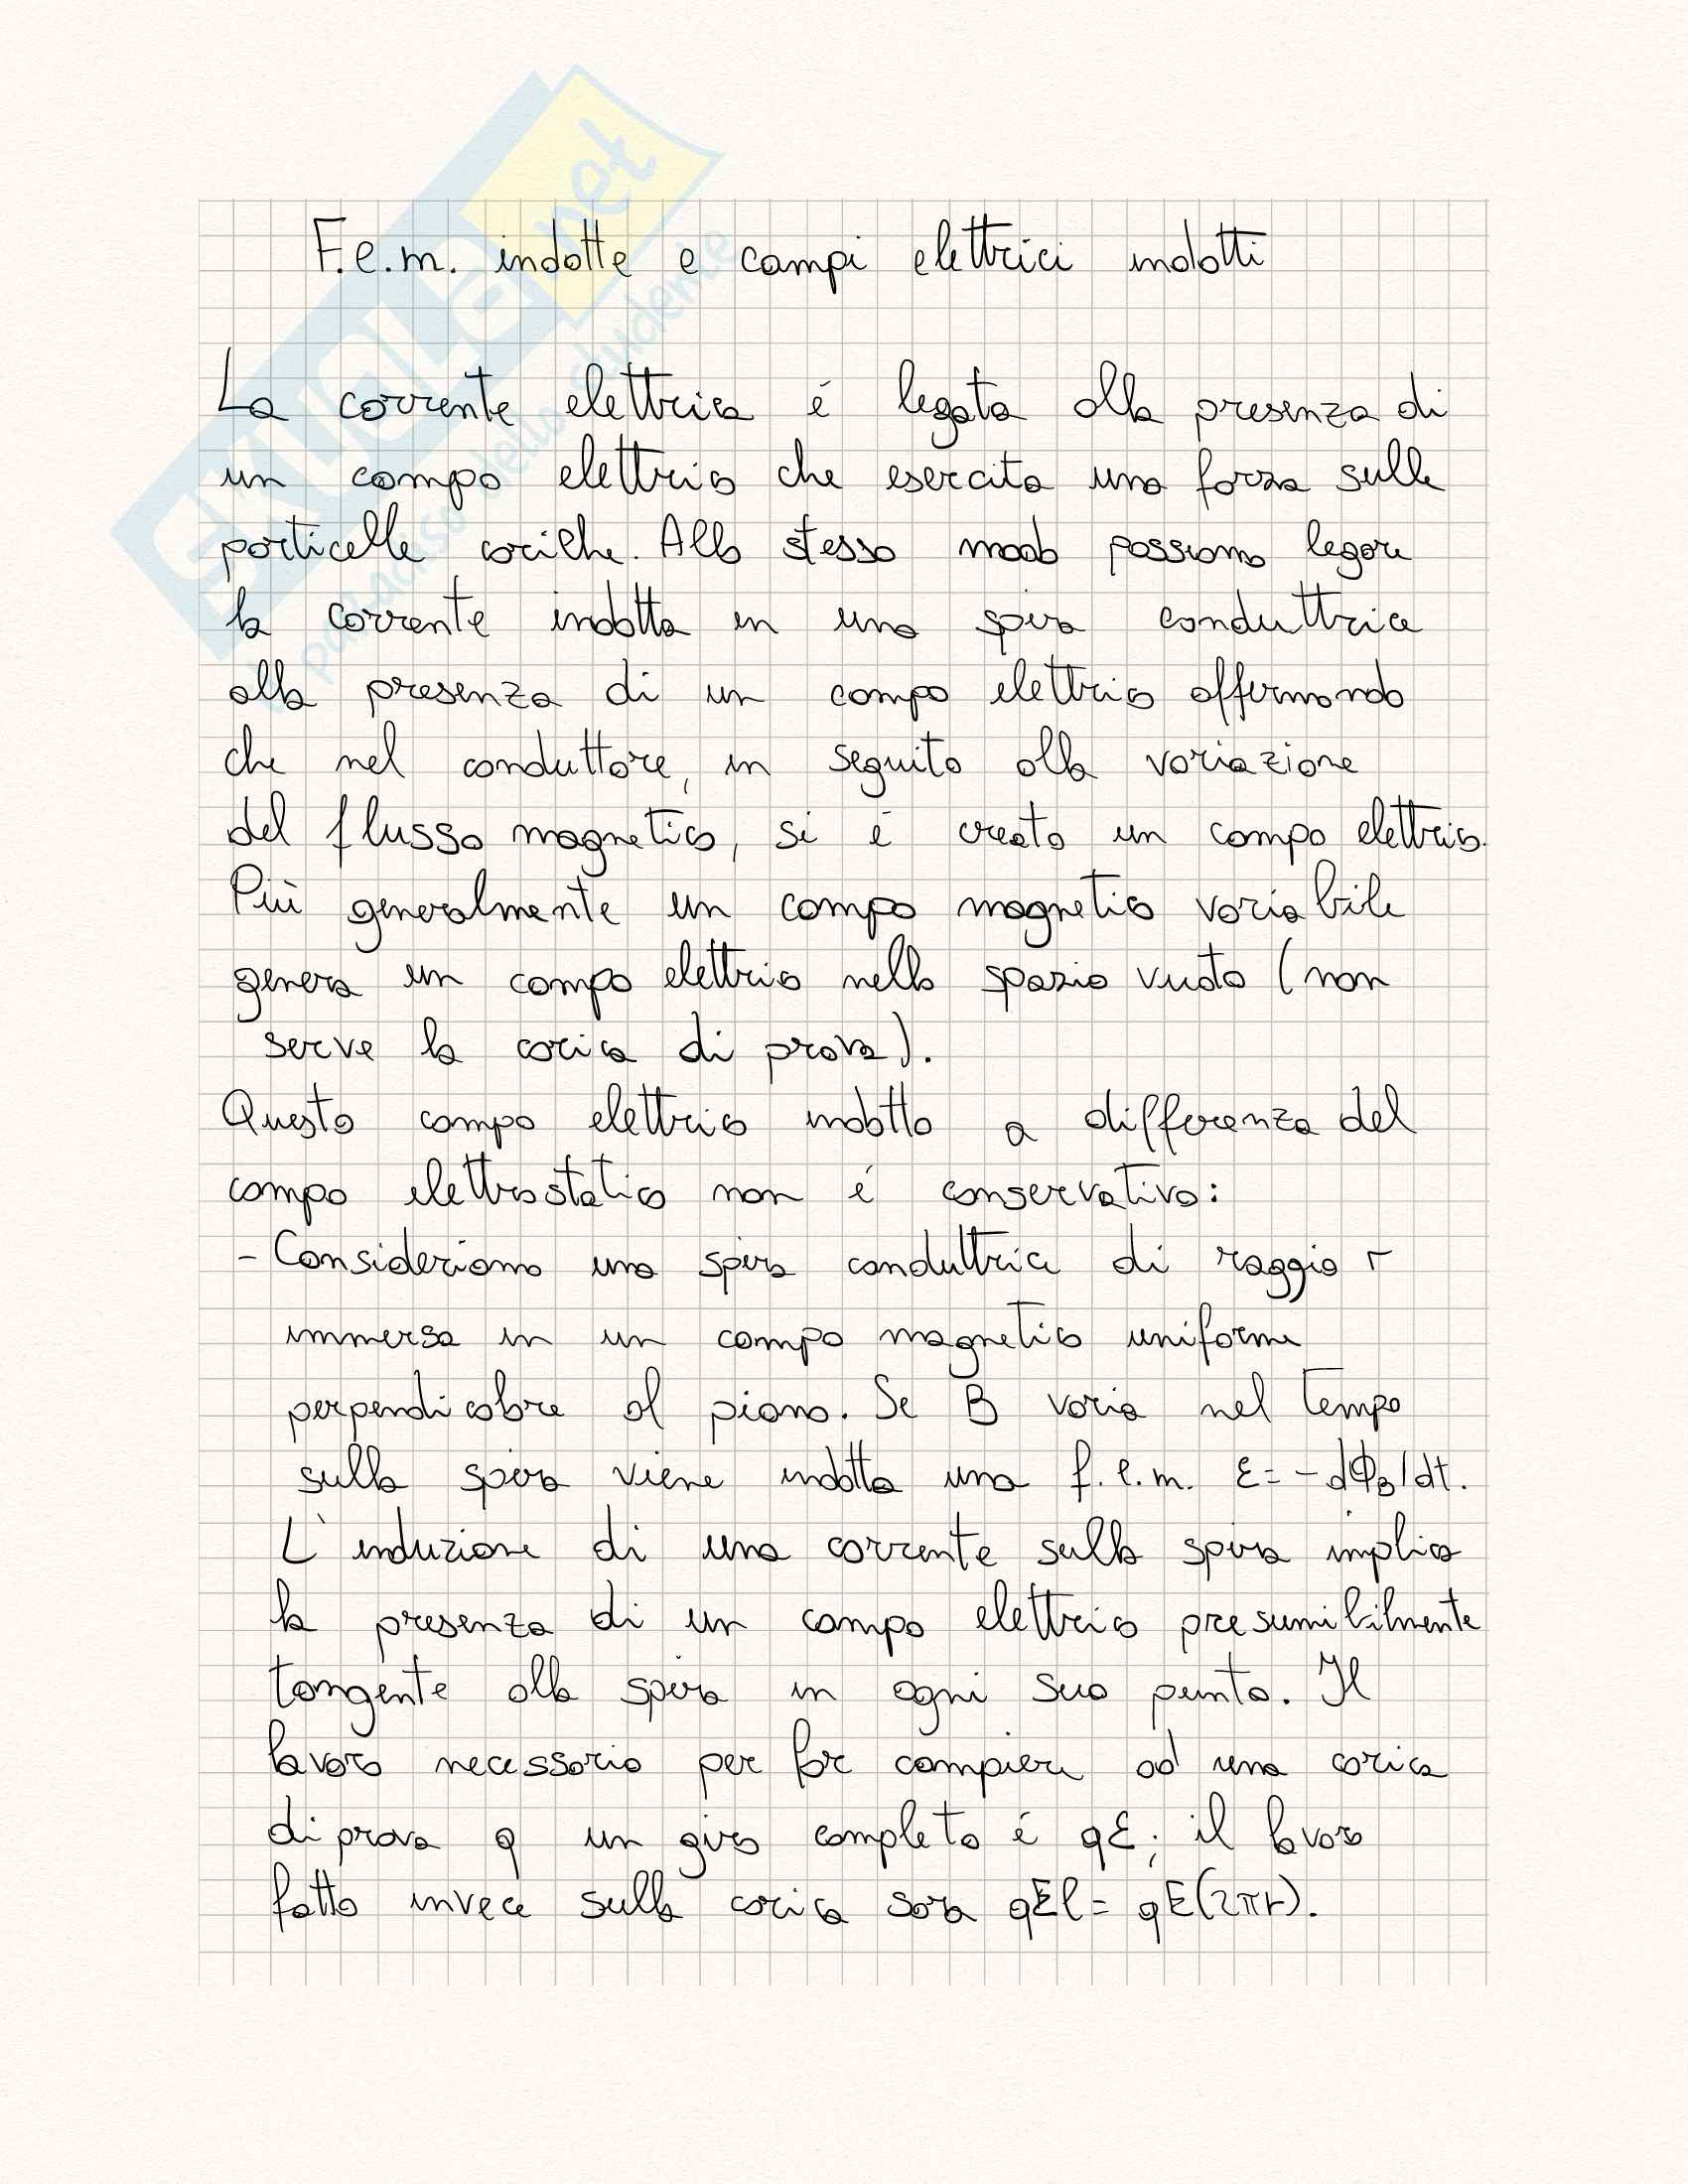 F.e.m. indotte e campi elettrici indotti
La corrente elettrica é legata alla presenza di
un campo elettrico che esercita una forza sulle
particelle cariche. Allo stesso modo possiamo legare
la corrente indotta in una spira conduttrice
alla presenza di un campo elettrico affermando
che nel conduttore, in seguito alla variazione
del flusso magnetico, si é creato un campo elettrico.
Più generalmente un campo magnetico variabile
genera un campo elettrico nello spazio vuoto (non
serve la carica di prova).
Questo campo elettrico indotto a differenza del
campo elettrostatico non é conservativo:
- Consideriamo una spira conduttrice di raggio r
immersa in un campo magnetico uniforme
perpendicolare al piano. Se B varia nel tempo
sulla spira viene indotta una f.e.m. ε = - dΦB/dt.
L'induzione di una corrente sulla spira implica
la presenza di un campo elettrico presumibilmente
tangente alla spira in ogni suo punto. Il
lavoro necessario per far compiere ad una carica
di prova q un giro completo é qε; il lavoro
fatto invece sulla carica sara qEl = qE(2πr).
SKUOLA.net
paradiso dello studente